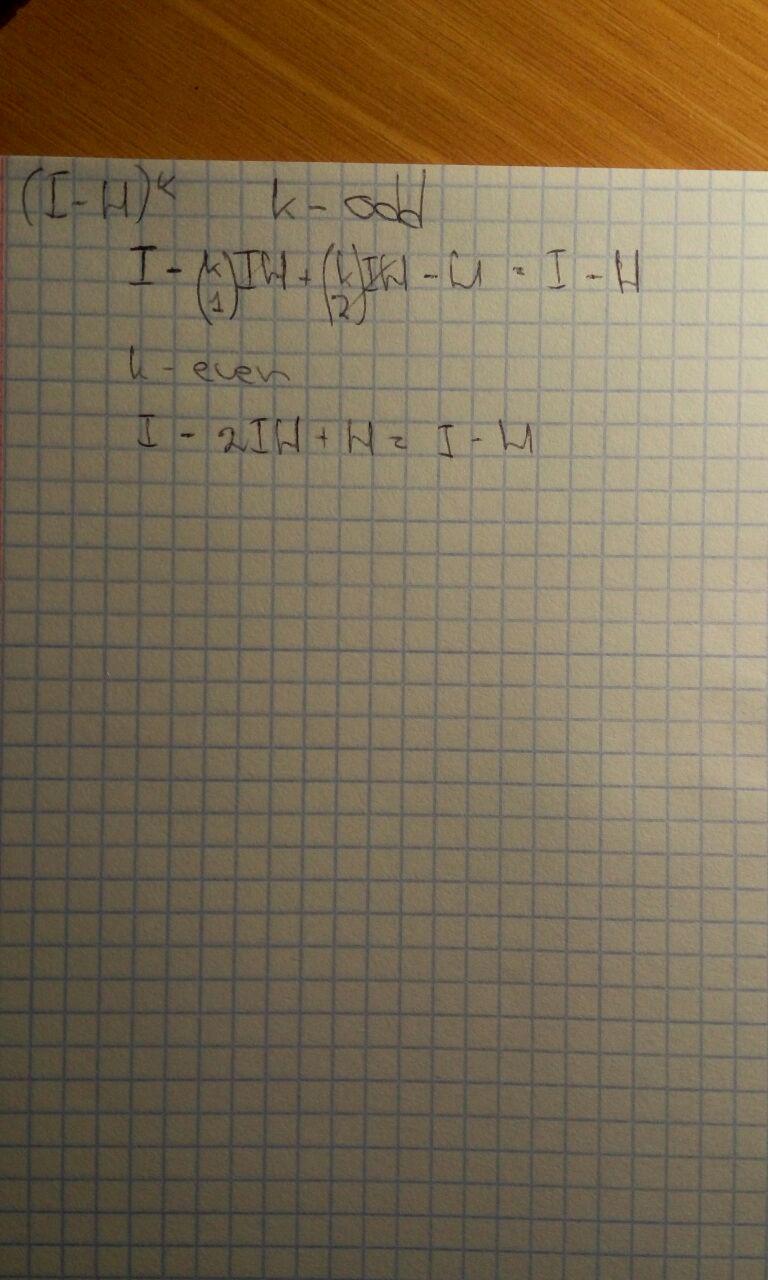 (I-H)^k k - odd
I - (k 1)IH + (k 2)IH - H = I - H
k - even
I - 2IH + H = I - H